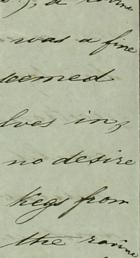 was a fine
seemed
lves in
no desire
Keys from
the ravine